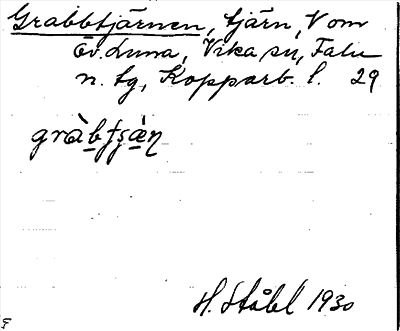 Grabbtjärnen, tjärn, V om
Öv. Luna, Vika sn, Falu
n. tg, Kopparb. l. 29
H. Ståhl 1930